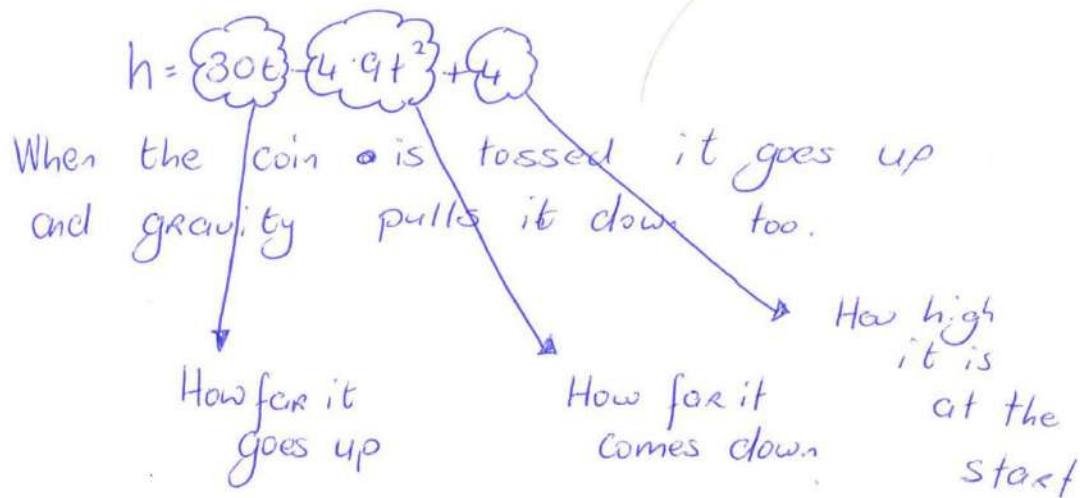 h = 30t - 4.9t² + 4
When the coin is tossed it goes up
and gravity pulls it down too.
How far it
goes up
How far it
comes down
How high
it is
at the
start